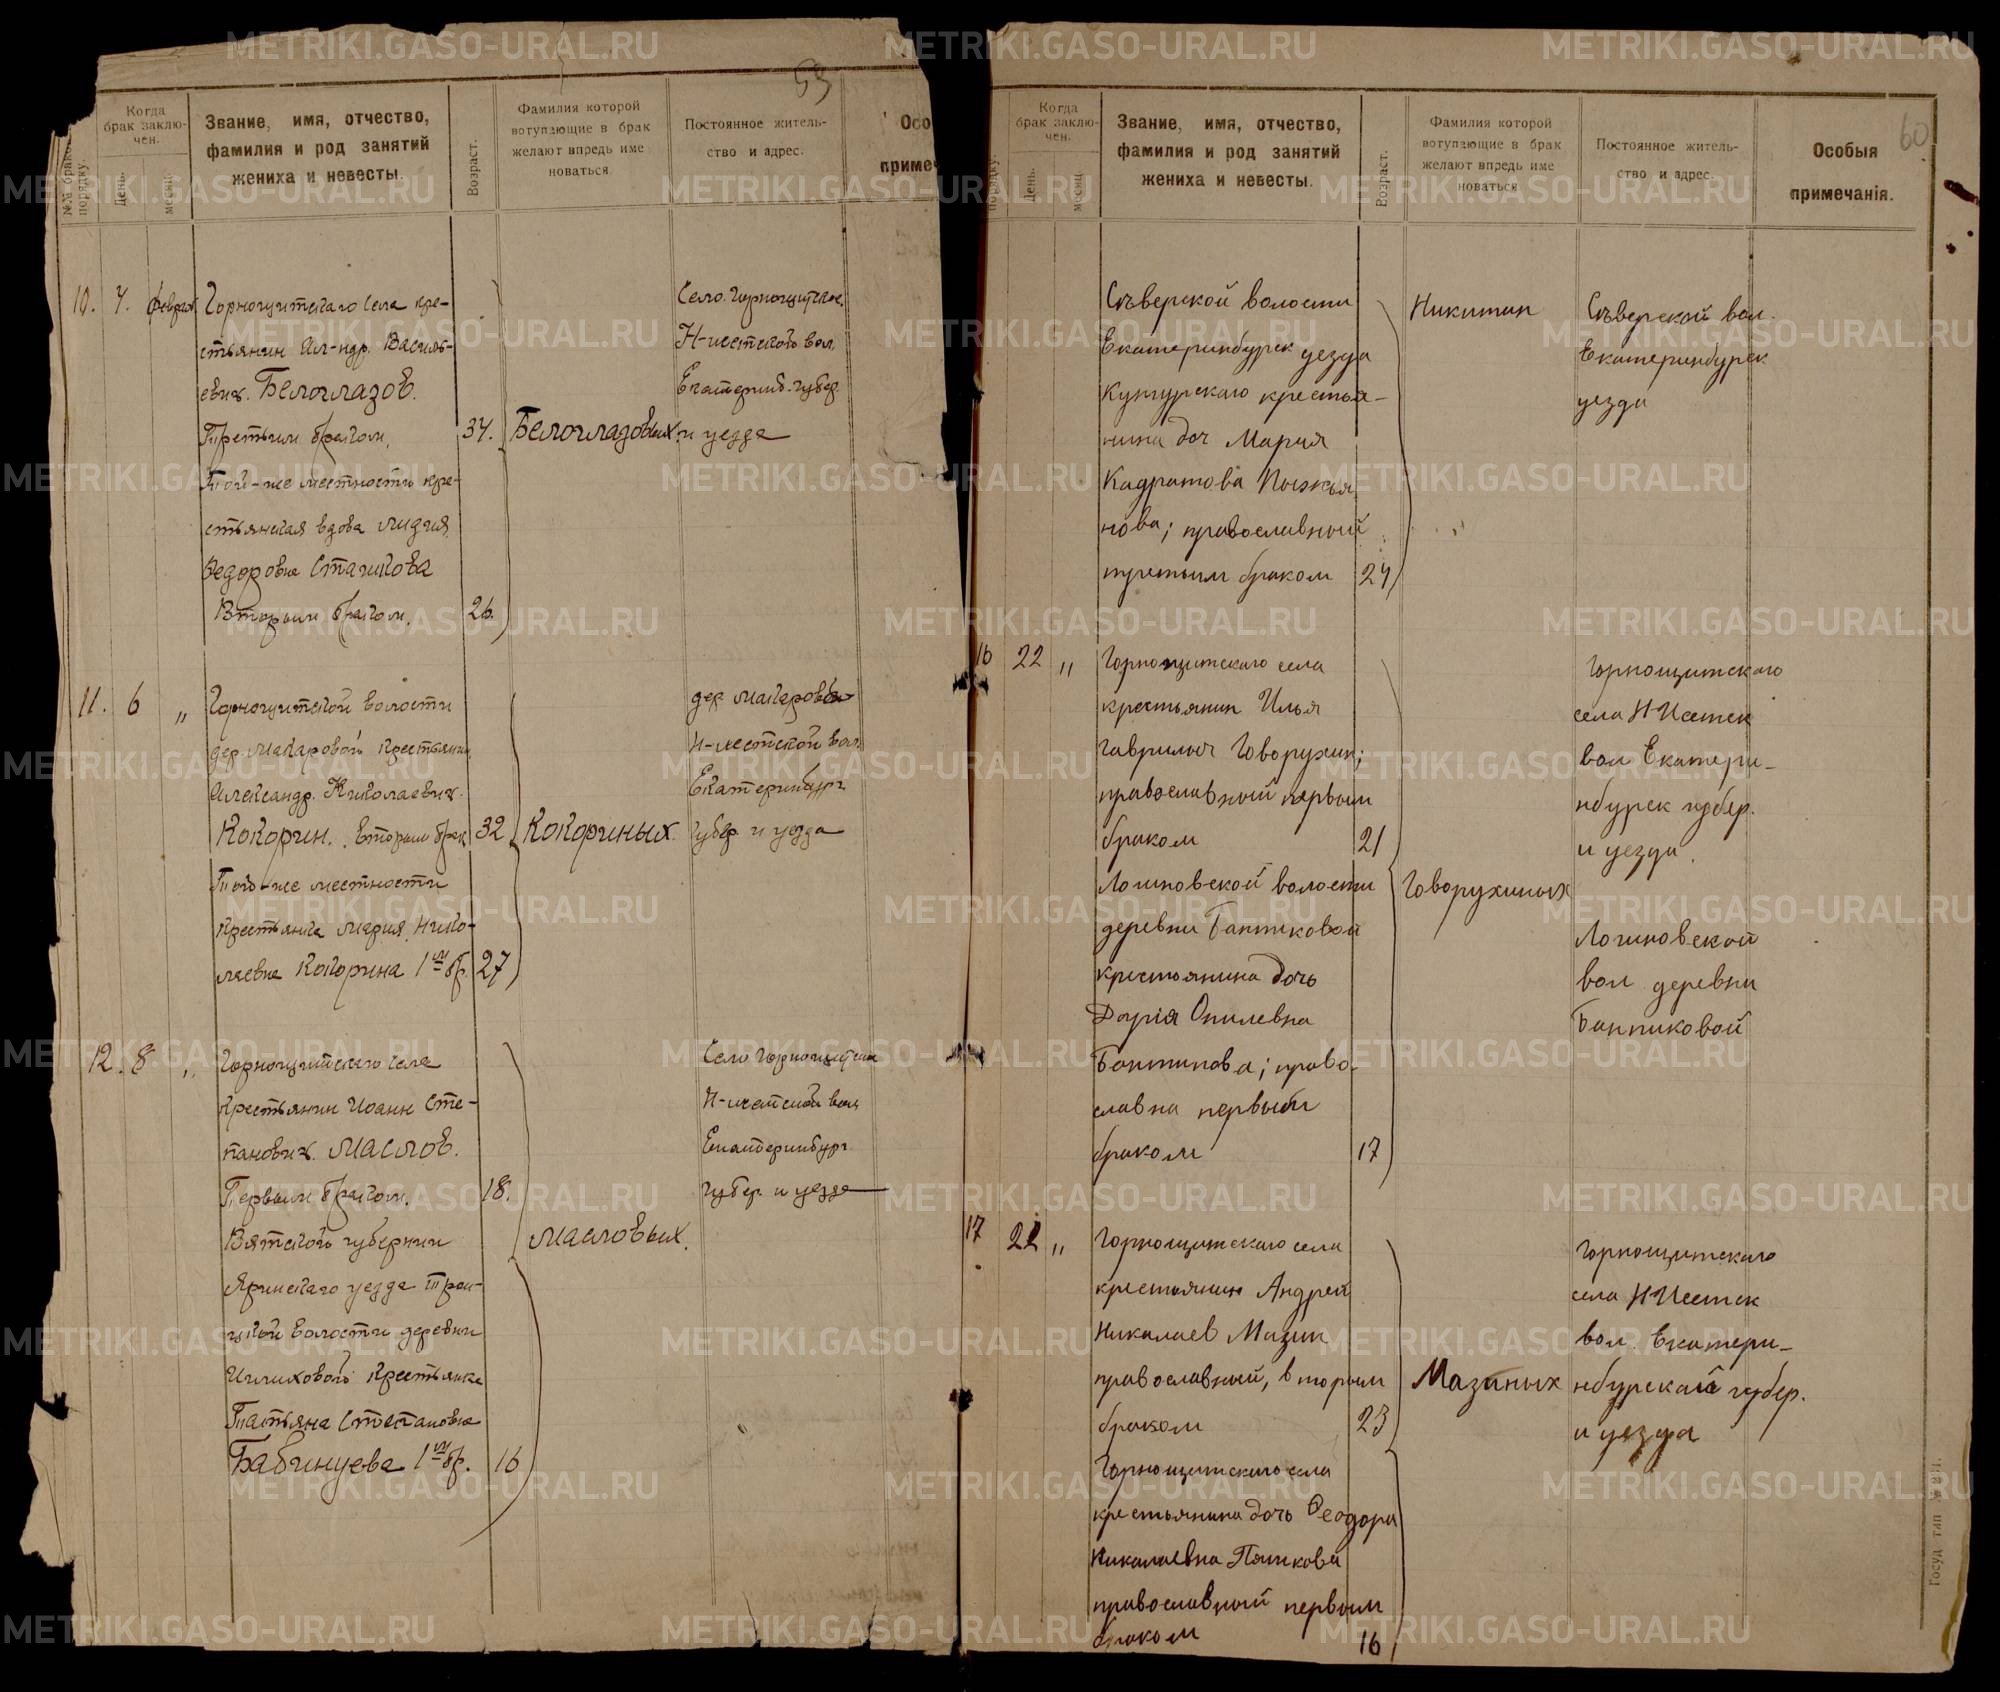 53
№№ брако
порядку.
Когда
брак заклю-
чен.
День.
месяц.
Звание, имя, отчество,
фамилия и род занятий
жениха и невесты.
Возраст.
Фамилия которой
вотупающие в брак
желают впредь име
новаться.
Постоянное житель-
ство и адрес.
Осо
примеч
10. 7. февраля
Горнощитскаго села кре-
стьянин Ал-ндр. Василь-
евич. Белоглазов.
Третьим браком. 37.
Той-же местности кре-
стьянская вдова Лидия
Федоровна
Вторым браком. 26.
Белоглазовых.
Село Горнощитское.
Н-исетской вол.
Екатеринб. губер.
и уезда
11. 6 "
Горнощитской волости
дер. Макаровой крестьянин
Александр. Николаевич.
Кокорин. Вторым брак 32
Той-же местности
крестьянка Мария Нико-
лаевна Кокорина 1м бр. 27
Кокориных.
дер. Макаровой
Н-исетской вол
Екатеринбург
губер. и уезда
12. 8 "
Горнощитскаго села
крестьянин Иоанн Сте-
панович. Маслов.
Первым браком. 18.
Вятской губернии
уезда Трои-
цкой волости деревни
крестьянка
Татьяна Степановна
Бабинцева 1м бр. 16
Масловых.
Село Горнощитское
Н-исетской вол.
Екатеринбург.
губер. и уезда
60
порядку.
Когда
брак заклю-
чен.
День.
месяц.
Звание, имя, отчество,
фамилия и род занятий
жениха и невесты.
Возраст.
Фамилия которой
вотупающие в брак
желают впредь име
новаться.
Постоянное житель-
ство и адрес.
Особыя
примечанія.
Съверской волости
Екатеринбурск уезда
Кунгурскаго крестья-
нина доч Мария
Кадратова
нова; православный
третьим браком 24
Никитин
Съверской вол.
Екатеринбурск
уезда
16 22 "
Горнощитскаго села
крестьянин Илья
Гаврилыч Говорухин;
православный первым
браком 21
Логиновской волости
деревни Бантиковой
крестьянина дочь
Дарія
Бантикова; право-
славна первым
браком 17
Говорухиных
Горнощитскаго
села Н Исетск
вол Екатери-
нбурск губер.
и уезда.
Логиновской
вол деревни
Бантиковой
17 22 "
Горнощитскаго села
крестьянин Андрей
Николаев Мазин
православный, вторым
браком 23
Горнощитскаго села
крестьянина дочь Феодора
Николаевна Пяткова
православный первым
браком 16
Мазиных
Горнощитскаго
села Н Исетск
вол. Екатери-
нбурской губер.
и уезда
Госуд. тип.
METRIKI.GASO-URAL.RU